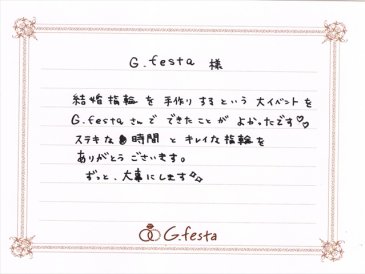 G.festa 様
結婚指輪を手作りするという大イベントを
G.festaさんでできたことがよかったです♡♡
ステキな時間とキレイな指輪を
ありがとうございます。
ずっと、大事にします☆☆
G.festa